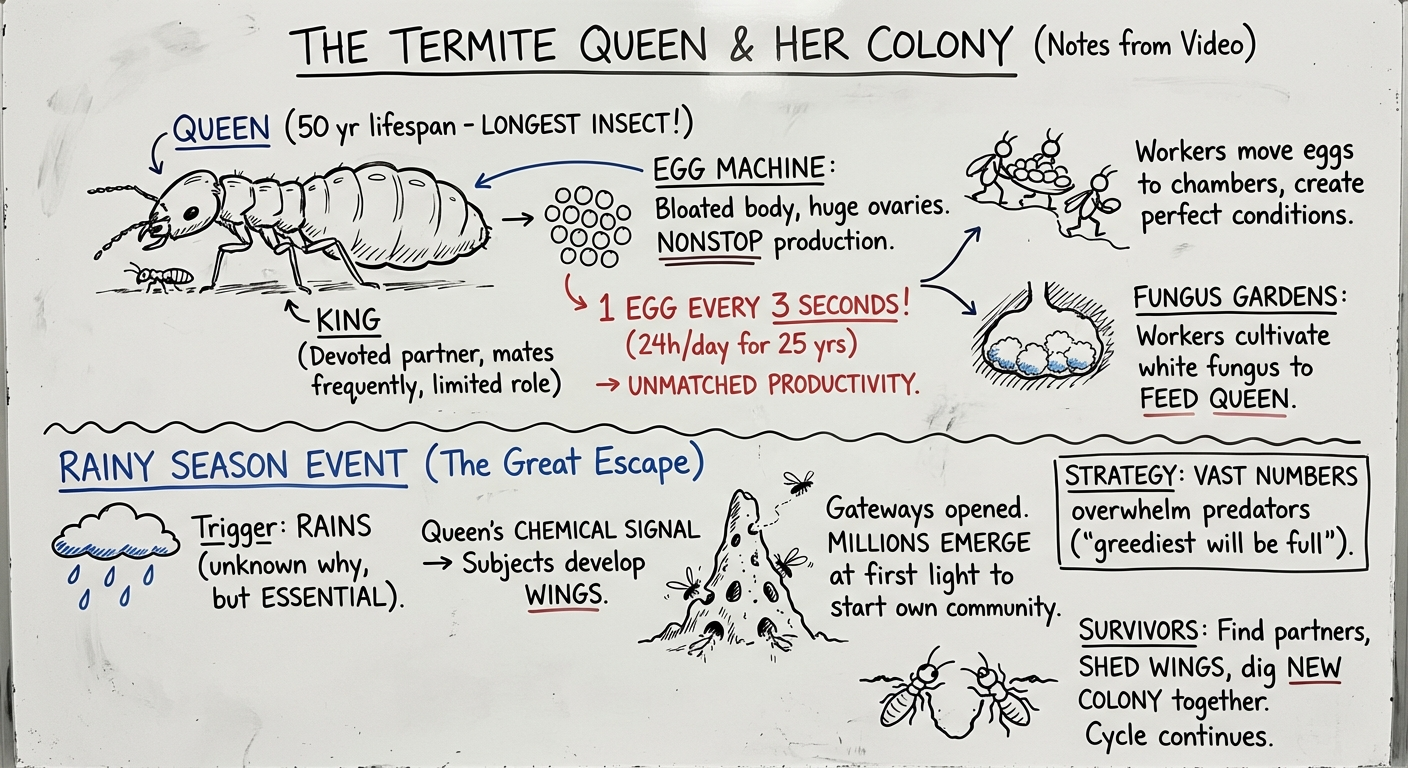 THE TERMITE QUEEN & HER COLONY (Notes from Video)
QUEEN (50 yr lifespan - LONGEST INSECT!)
EGG MACHINE:
Bloated body, huge ovaries.
NONSTOP production.
1 EGG EVERY 3 SECONDS!
(24h/day for 25 yrs)
→ UNMATCHED PRODUCTIVITY.
KING
(Devoted partner, mates
frequently, limited role)
Workers move eggs
to chambers, create
perfect conditions.
FUNGUS GARDENS:
Workers cultivate
white fungus to
FEED QUEEN.
RAINY SEASON EVENT (The Great Escape)
Trigger: RAINS
(unknown why,
but ESSENTIAL).
Queen's CHEMICAL SIGNAL
→ Subjects develop
WINGS.
Gateways opened.
MILLIONS EMERGE
at first light to
start own community.
STRATEGY: VAST NUMBERS
overwhelm predators
("greediest will be full").
SURVIVORS: Find partners,
SHED WINGS, dig NEW
COLONY together.
Cycle continues.